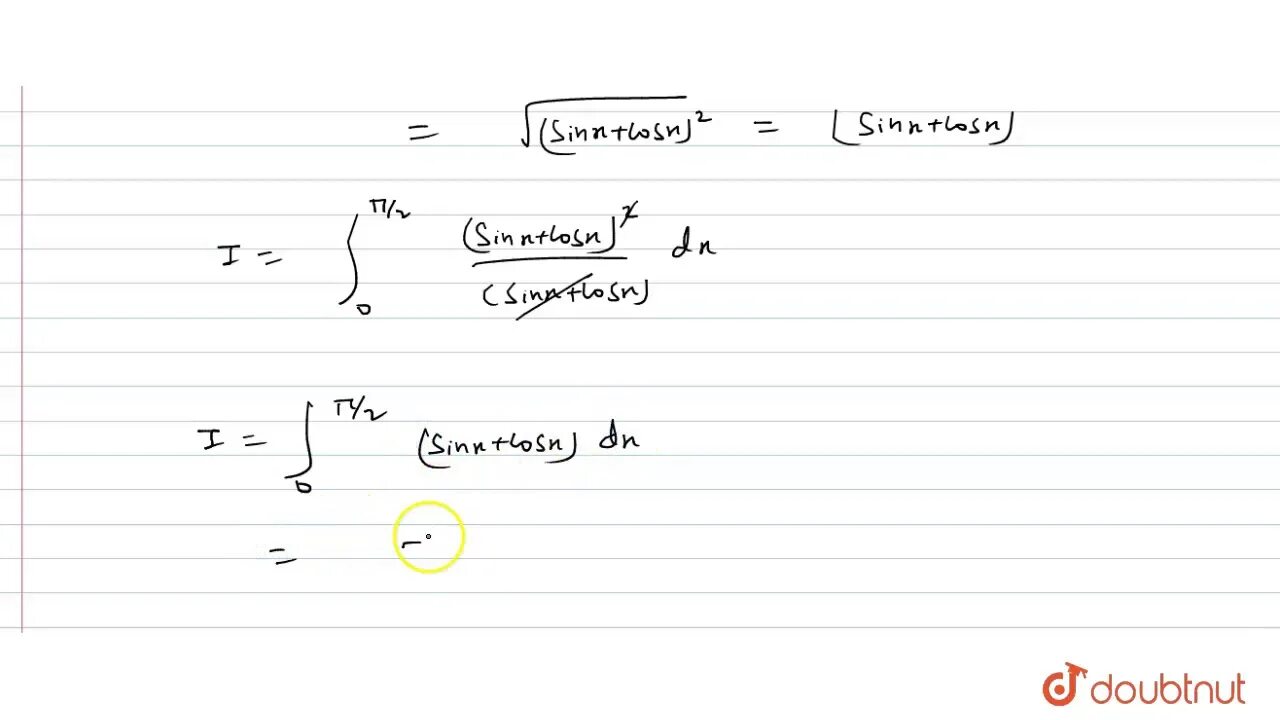 = √(Sinx+Cosx)² = (Sinx+Cosx)
I = ∫₀^π/2 (Sinx+Cosx)² / (Sinx+Cosx) dx
I = ∫₀^π/2 (Sinx+Cosx) dx
= -
doubtnut